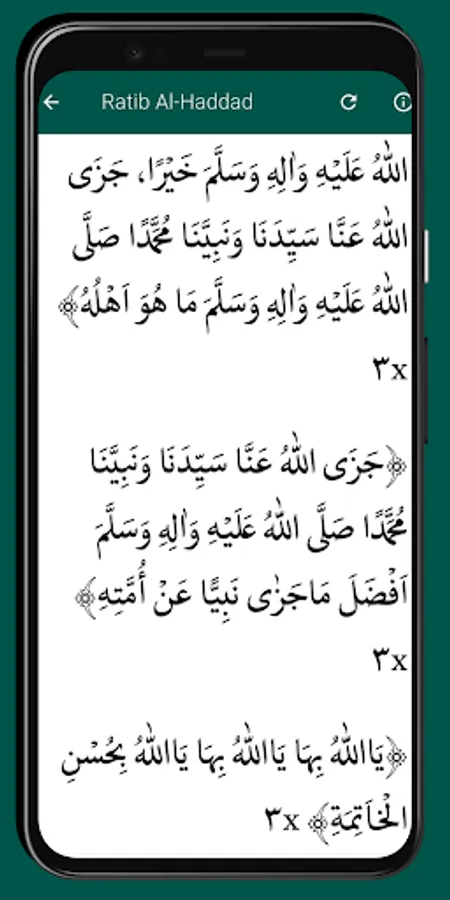 Ratib Al-Haddad
اللهُ عَلَيْهِ وَاٰلِهِ وَسَلَّمَ خَيْرًا، جَزَى
اللهُ عَنَّا سَيِّدَنَا وَنَبِيَّنَا مُحَمَّدًا صَلَّى
اللهُ عَلَيْهِ وَاٰلِهِ وَسَلَّمَ مَا هُوَ اَهْلُهُ﴾
٣x
﴿جَزَى اللهُ عَنَّا سَيِّدَنَا وَنَبِيَّنَا
مُحَمَّدًا صَلَّى اللهُ عَلَيْهِ وَاٰلِهِ وَسَلَّمَ
اَفْضَلَ مَاجَزٰى نَبِيًّا عَنْ أُمَّتِهِ﴾
٣x
﴿يَااَللهُ بِهَا يَااَللهُ بِهَا يَااَللهُ بِحُسْنِ
الْخَاتِمَةِ﴾ ٣x